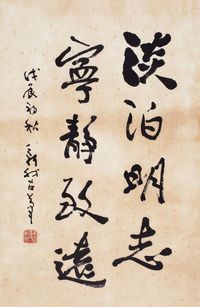 淡泊明志
寧靜致遠
戊辰初秋